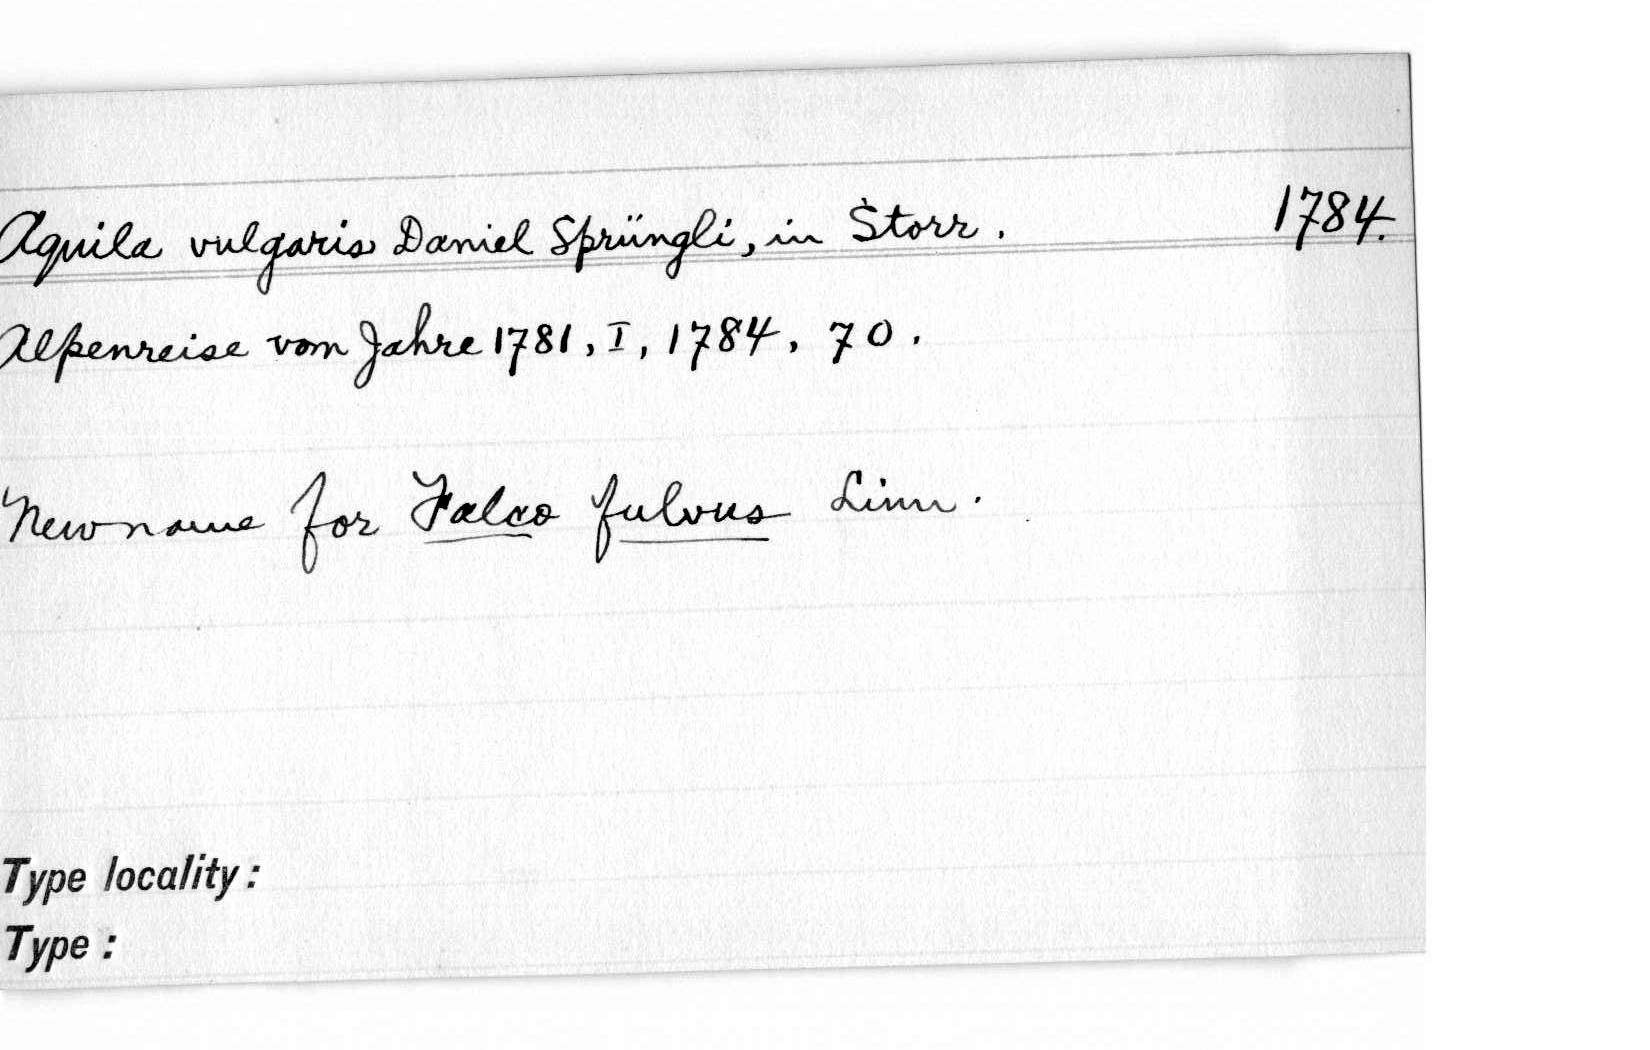 Aquila vulgaris Daniel Sprüngli, in Storr. 1784.
Alpenreise vom Jahre 1781, I, 1784, 70.
New name for Falco fulvus Linn.
Type locality:
Type: